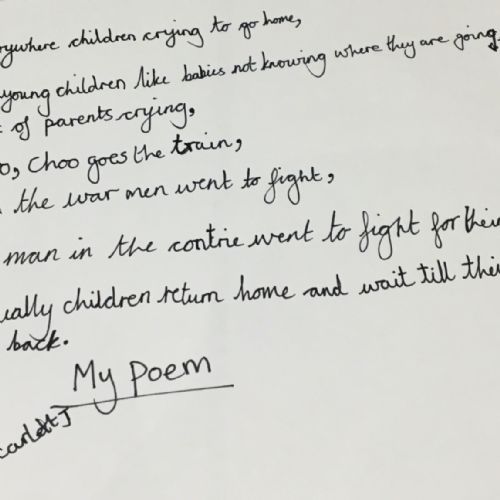 rywhere children crying to go home,
young children like babies not knowing where they are going.
of parents crying,
o, Choo goes the train,
the war men went to fight,
man in the contrie went to fight for thei
ually children return home and wait till thei
back.
My Poem
carlett J